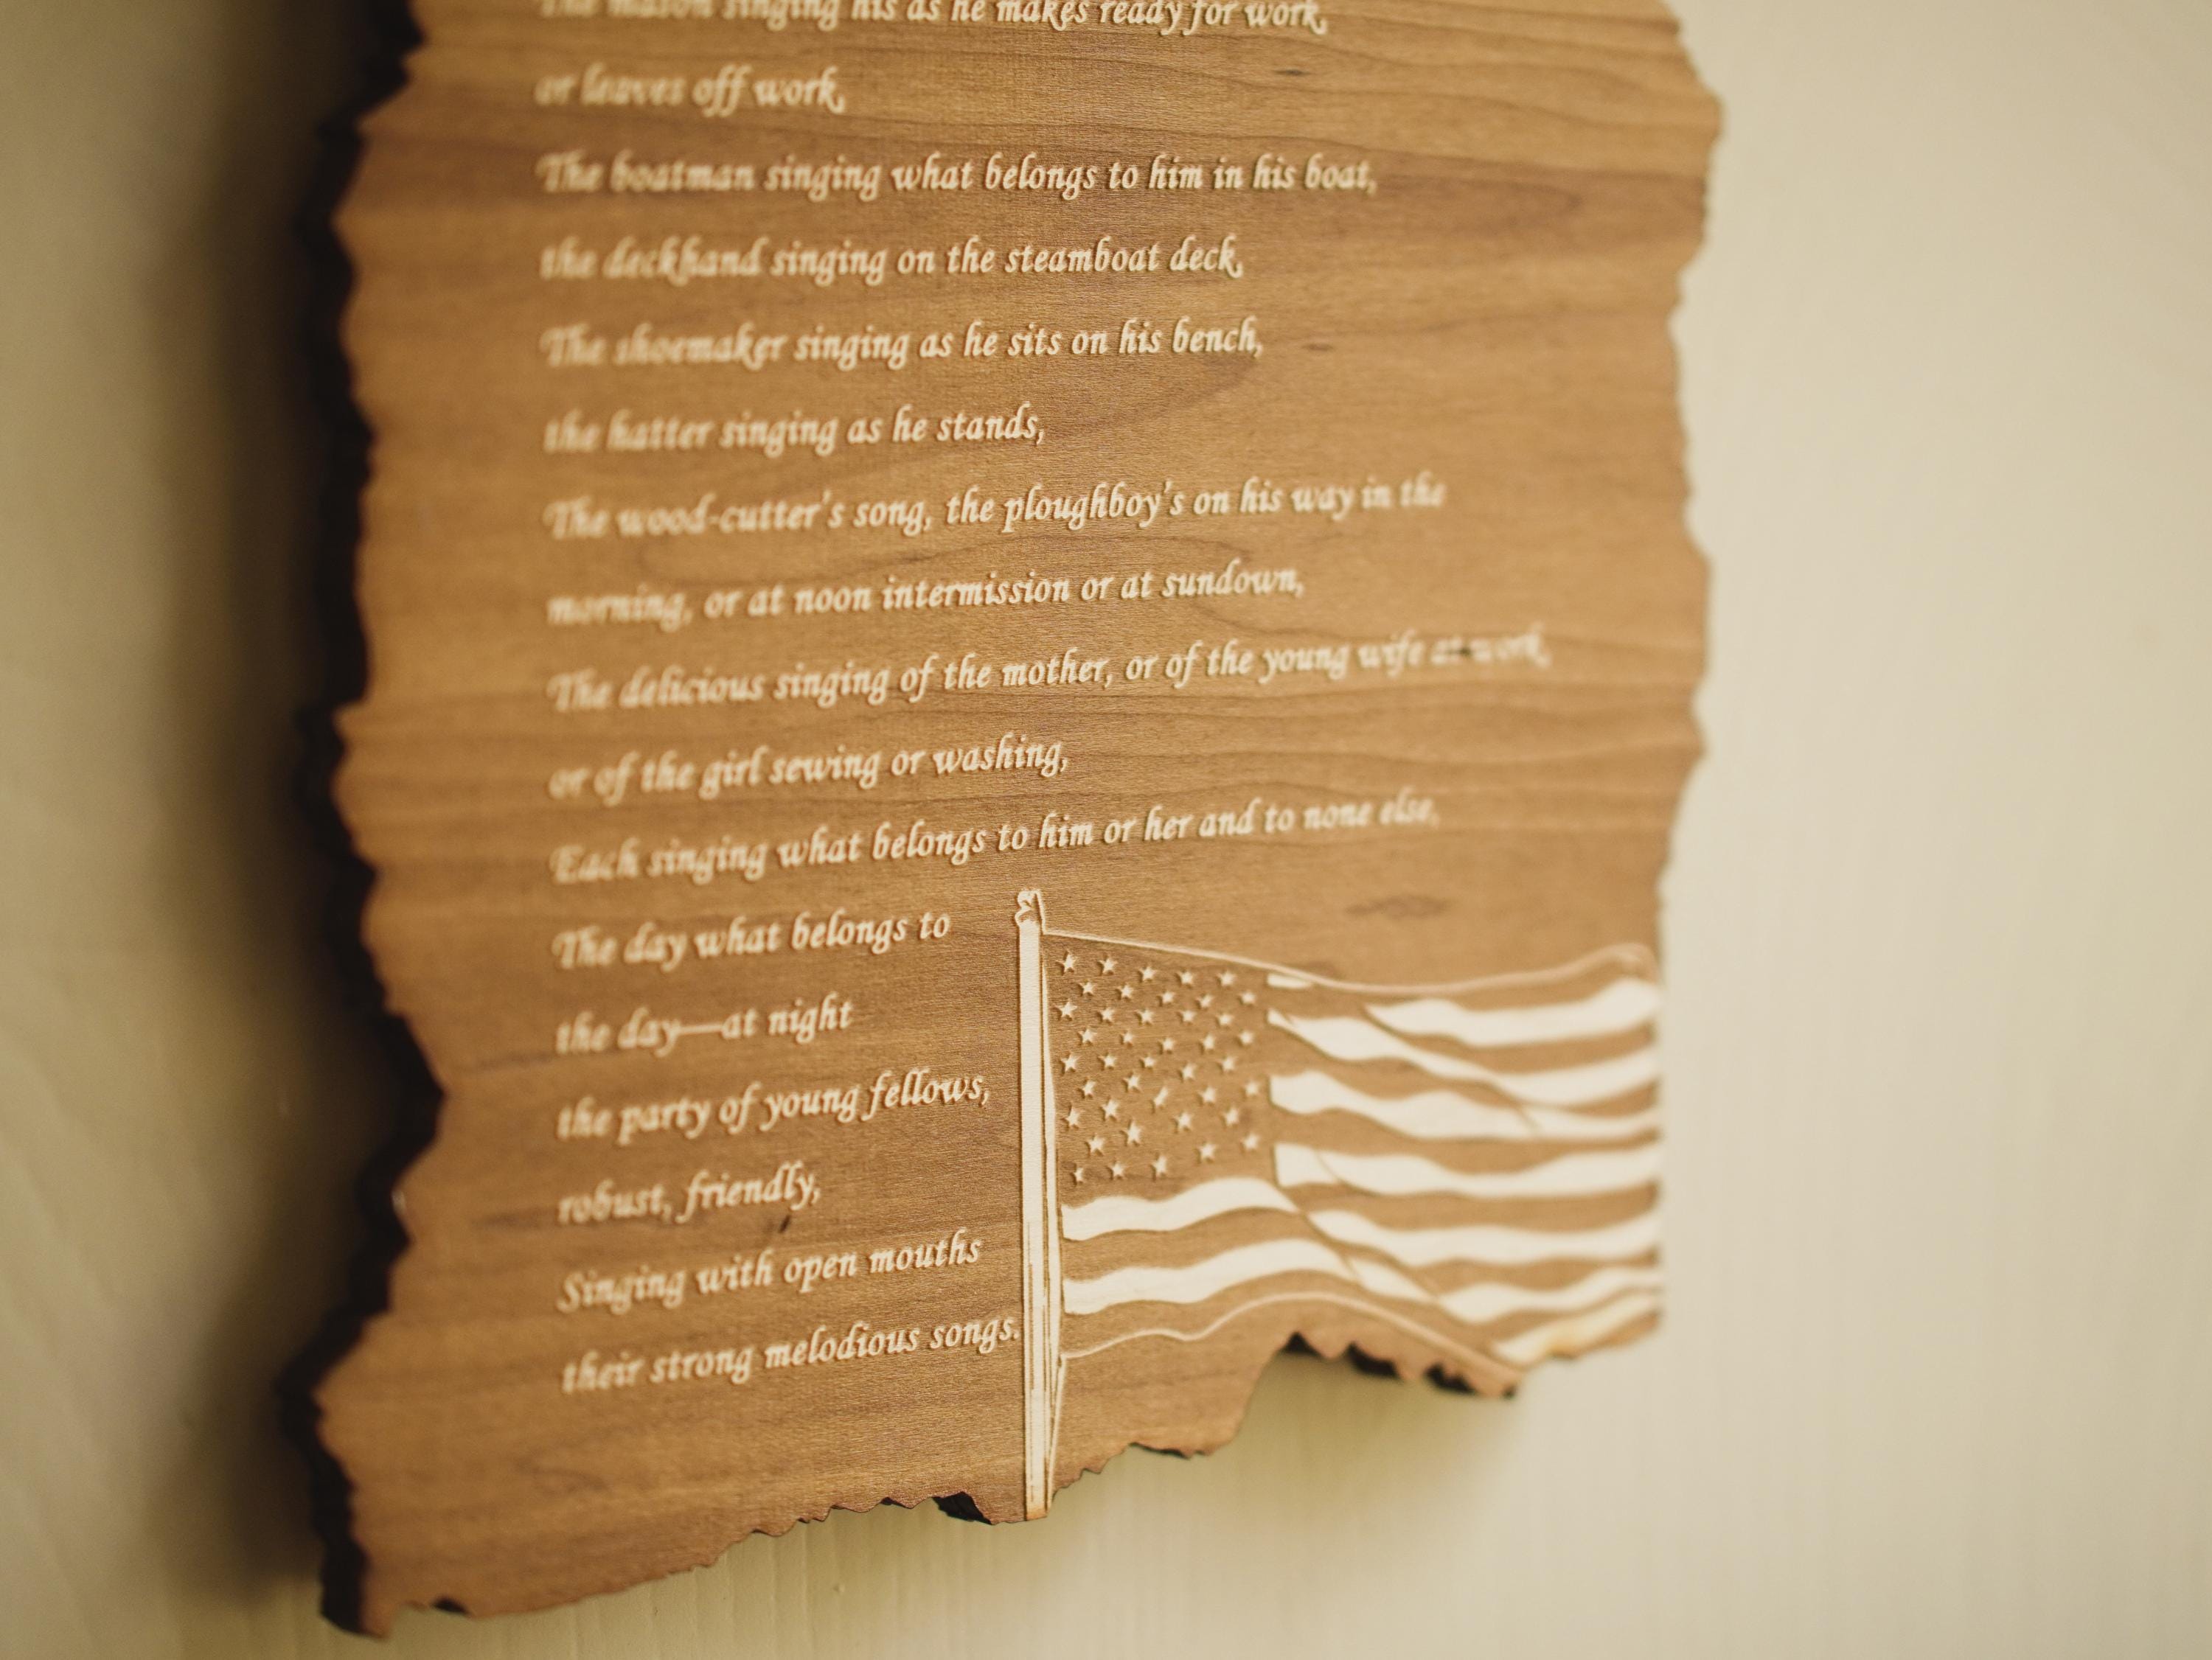 The mason singing his as he makes ready for work,
or leaves off work,
The boatman singing what belongs to him in his boat,
the deckhand singing on the steamboat deck,
The shoemaker singing as he sits on his bench,
the hatter singing as he stands,
The wood-cutter's song, the ploughboy's on his way in the
morning, or at noon intermission or at sundown,
The delicious singing of the mother, or of the young wife at work,
or of the girl sewing or washing,
Each singing what belongs to him or her and to none else,
The day what belongs to
the day—at night
the party of young fellows,
robust, friendly,
Singing with open mouths
their strong melodious songs.